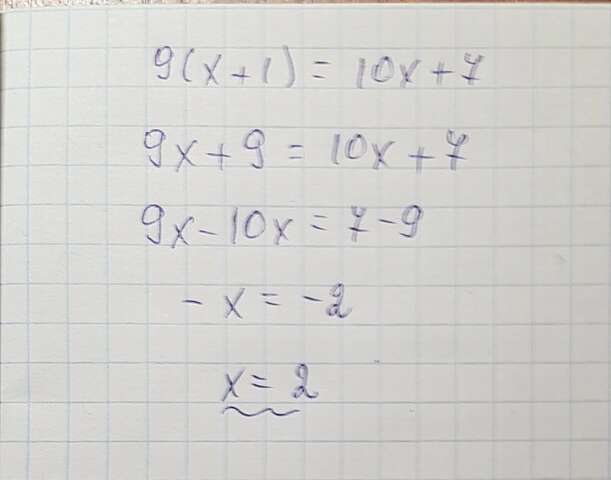 9(x+1) = 10x+7
9x+9 = 10x+7
9x-10x = 7-9
-x = -2
x = 2